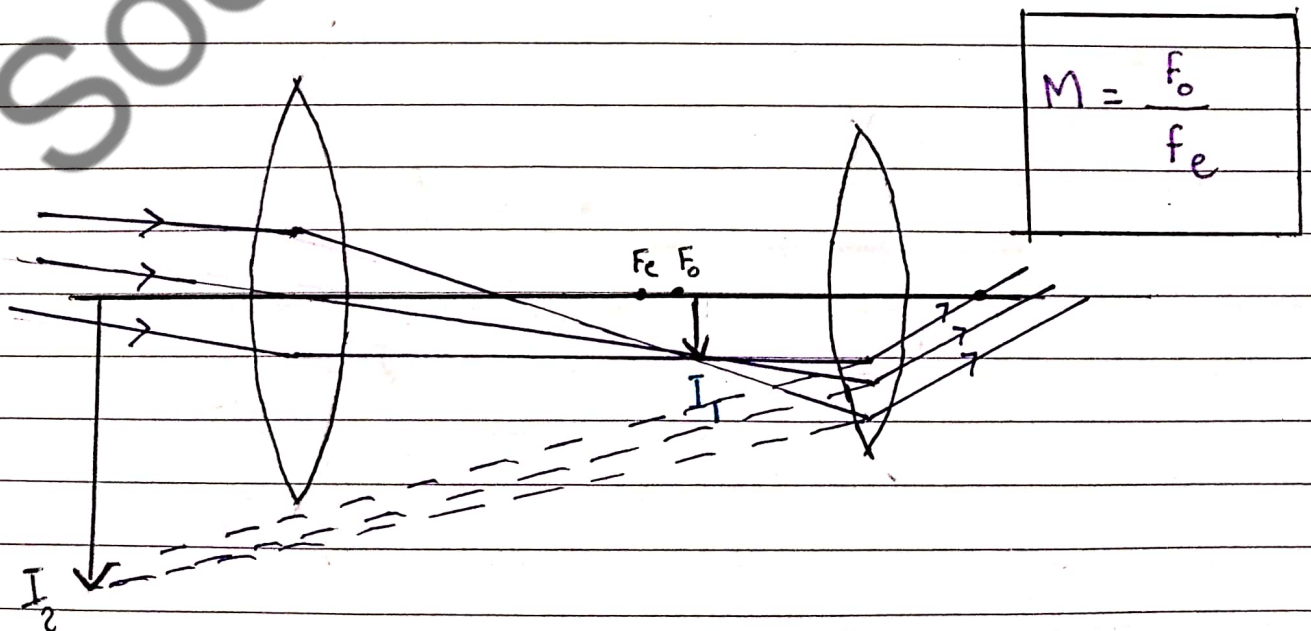 So
M = Fo / fe
Fe Fo
I1
I2